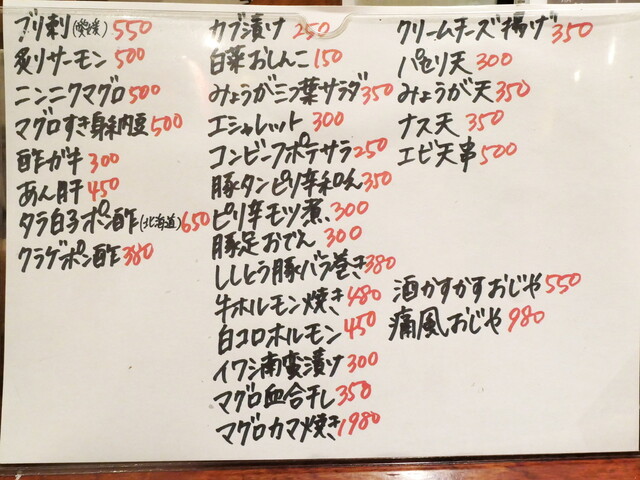 ブリ刺(愛媛) 550
炙りサーモン 500
ニンニクマグロ 500
マグロすき身納豆 500
酢ガキ 300
あん肝 450
タラ白子ポン酢(北海道) 650
クラゲポン酢 380
カブ漬け 250
白菜おしんこ 150
みょうが三ツ葉サラダ 350
エシャレット 300
コンビーフポテサラ 250
豚タンピリ辛和え 350
ピリ辛モツ煮、300
豚足おでん 300
ししとう豚バラ巻き 380
牛ホルモン焼き 480
白コロホルモン 450
イワシ南蛮漬け 300
マグロ血合干し 350
マグロカマ焼き 1980
クリームチーズ揚げ 350
パセリ天 300
みょうが天 350
ナス天 350
エビ天串 500
酒かすかすおじや 550
痛風おじや 980